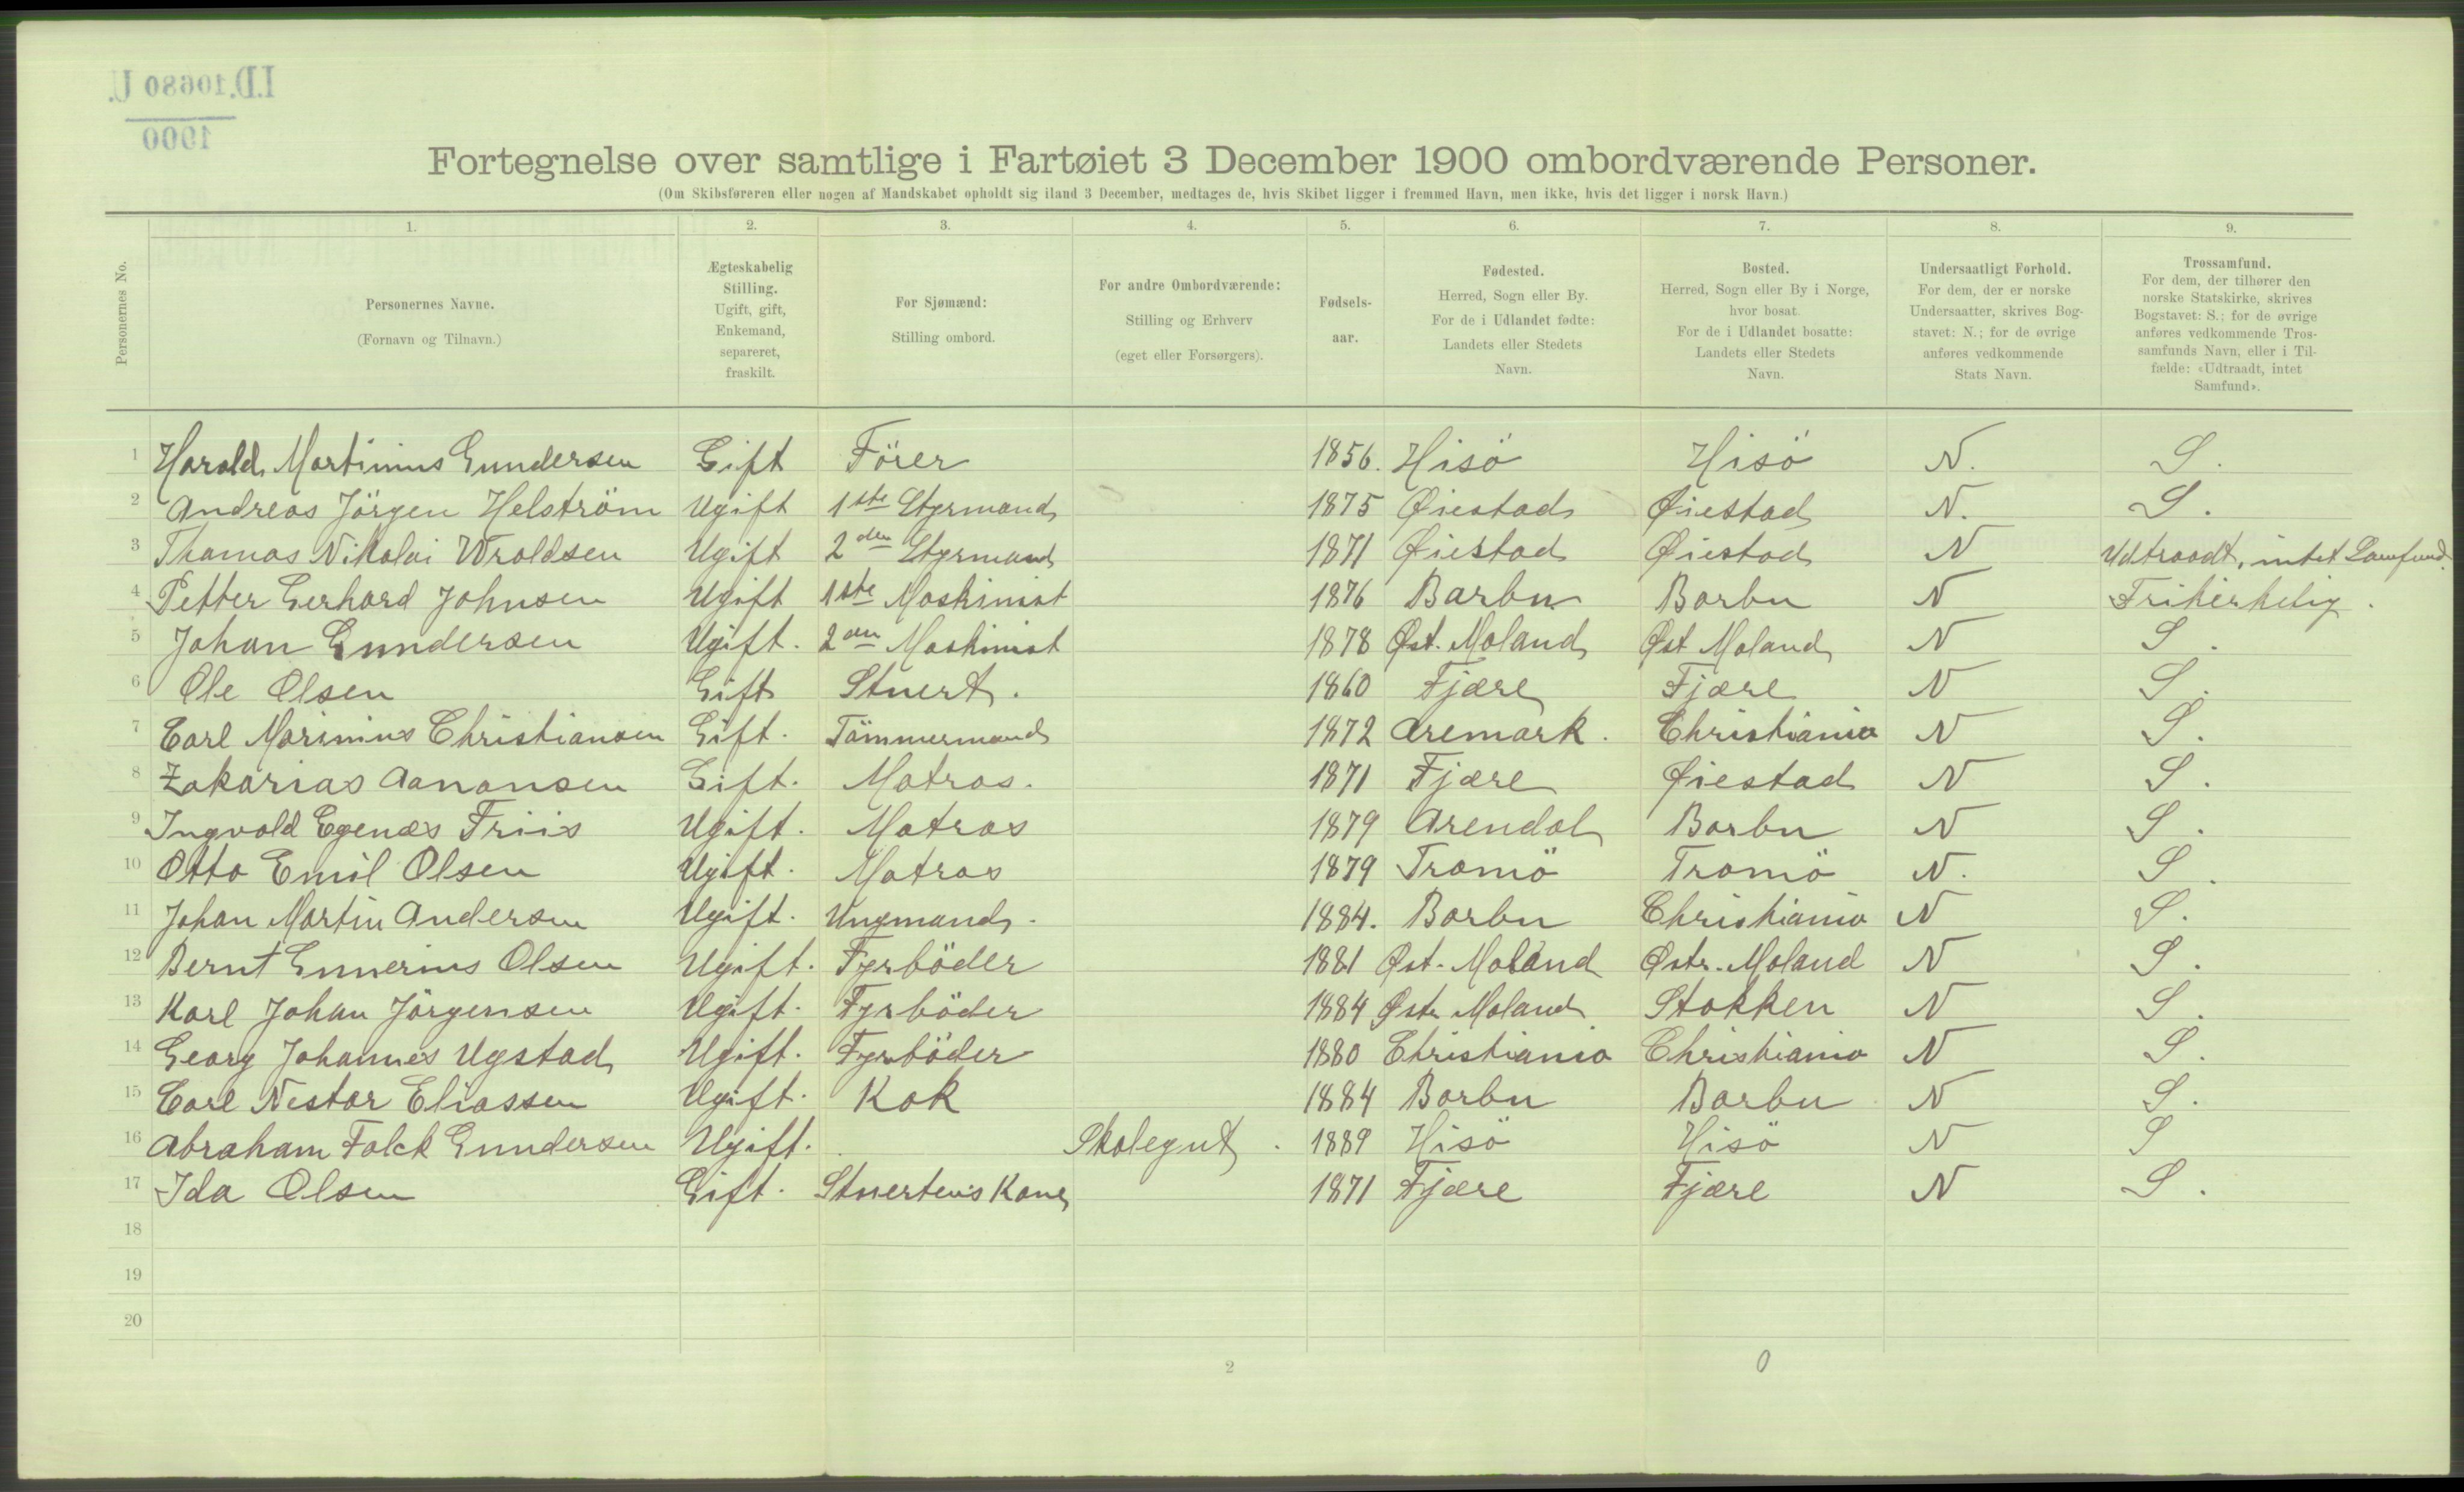 I.D. 10680 U.
1900
Fortegnelse over samtlige i Fartøiet 3 December 1900 ombordværende Personer.
(Om Skibsføreren eller nogen af Mandskabet opholdt sig iland 3 December, medtages de, hvis Skibet ligger i fremmed Havn, men ikke, hvis det ligger i norsk Havn.)
1. 2. 3. 4. 5. 6. 7. 8. 9.
Personernes No.
Personernes Navne.
(Fornavn og Tilnavn.)
Ægteskabelig
Stilling.
Ugift, gift,
Enkemand,
separeret,
fraskilt.
For Sjømænd:
Stilling ombord.
For andre Ombordværende:
Stilling og Erhverv
(eget eller Forsørgers).
Fødsels-
aar.
Fødested.
Herred, Sogn eller By.
For de i Udlandet fødte:
Landets eller Stedets
Navn.
Bosted.
Herred, Sogn eller By i Norge,
hvor bosat.
For de i Udlandet bosatte:
Landets eller Stedets
Navn.
Undersaatligt Forhold.
For dem, der er norske
Undersaatter, skrives Bog-
stavet: N.; for de øvrige
anføres vedkommende
Stats Navn.
Trossamfund.
For dem, der tilhører den
norske Statskirke, skrives
Bogstavet: S.; for de øvrige
anføres vedkommende Tros-
samfunds Navn, eller i Til-
fælde: «Udtraadt, intet
Samfund».
1 Harald Martinius Gundersen Gift Förer 1856. Hisö Hisö N. S.
2 Andreas Jörgen Helström Ugift 1ste Styrmand 1875 Øiestad Øiestad N. S.
3 Thomas Nikolai Wroldsen Ugift 2den Styrmand 1871 Øiestad Øiestad N Udtraadt, intet Samfund.
4 Petter Gerhard Johnsen Ugift 1ste Maskinist 1876 Barbu Barbu N Frikirkelig.
5 Johan Gundersen Ugift. 2den Maskinist 1878 Øst. Moland Øst Moland N S.
6 Ole Olsen Gift Stuert. 1860 Fjære Fjære N S.
7 Carl Marinius Christiansen Gift. Tömmermand 1872 Aremark. Christiania N S.
8 Zakarias Aanonsen Gift. Matros. 1871 Fjære Øiestad N S.
9 Ingvald Egenæs Friis Ugift. Matros 1879 Arendal Barbu N S.
10 Otto Emil Olsen Ugift. Matros 1879 Tromö Tromö N. S.
11 Johan Martin Andersen Ugift. Ungmand. 1884. Barbu Christiania N S.
12 Bernt Gunerius Olsen Ugift. Fyrböder 1881 Øst. Moland Østr. Moland N S.
13 Karl Johan Jörgensen Ugift. Fyrböder 1884 Østr Moland Stokken N S.
14 Georg Johannes Ugstad Ugift. Fyrböder 1880 Christiania Christiania N S.
15 Carl Nestor Eliassen Ugift. Kok 1884 Barbu Barbu N S.
16 Abraham Falck Gundersen Ugift. Skolegut. 1889 Hisö Hisö N S
17 Ida Olsen Gift. Stuertens Kone 1871 Fjære Fjære N S.
18
19
20
2 0